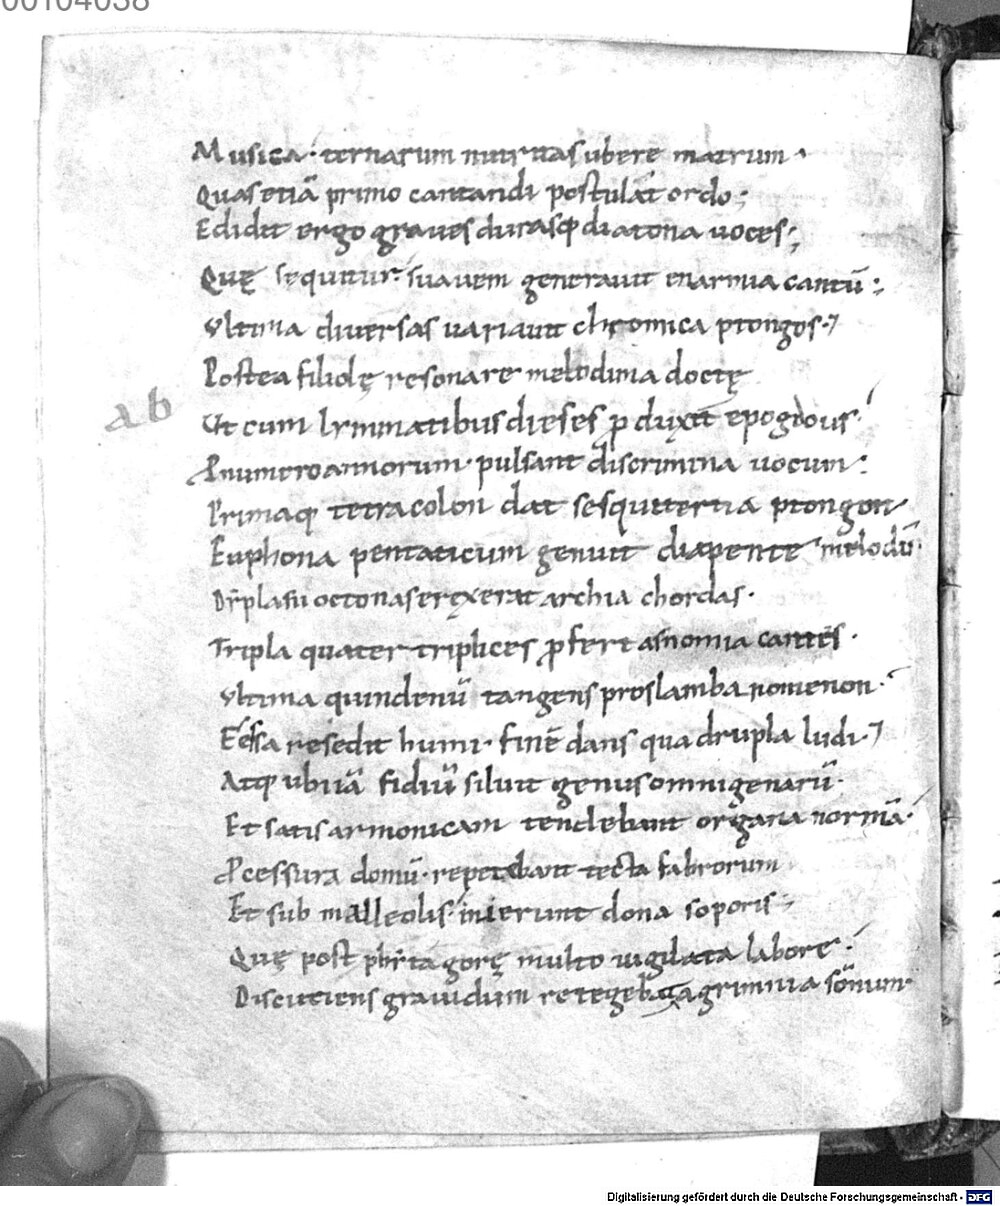 00104038
Musica · ternarum nutritas ubere matrum ·
Quas etiā primo cantandi postulat ordo ;
Edidit ergo graues durasq; diatona uoces ;
Quę sequitur suauem generauit enarmia cantū :
Vltima diuersas uariauit chromica ptongos ·
Postea filiolę resonare melodima doctę
a b
Ut cum lymmatibus dieses ꝓduxit epogdous
Pnumero annorum · pulsant discrimina uocum :
Primaq; tetracolon dat sesquitertia ptongon
Euphona pentaticum genuit diapente melodū ·
octonas erexerat archia chordas ·
Tripla quater triplices ꝓfert cantes ·
Vltima quindenū tangens proslambanomenon ·
resedit humi · finē dans quadrupla ludi ·
Atq; ubi iā fidiū siluit genus omnigenarū ·
Et satis armonicam tendebant organa normā ·
Pcessura domū · repetebant tecta fabrorum
Et sub malleolis inierunt dona soporis ;
Quę post multo uigilata labore ·
Discutiens grauidum sonum ·
Digitalisierung gefördert durch die Deutsche Forschungsgemeinschaft - DFG